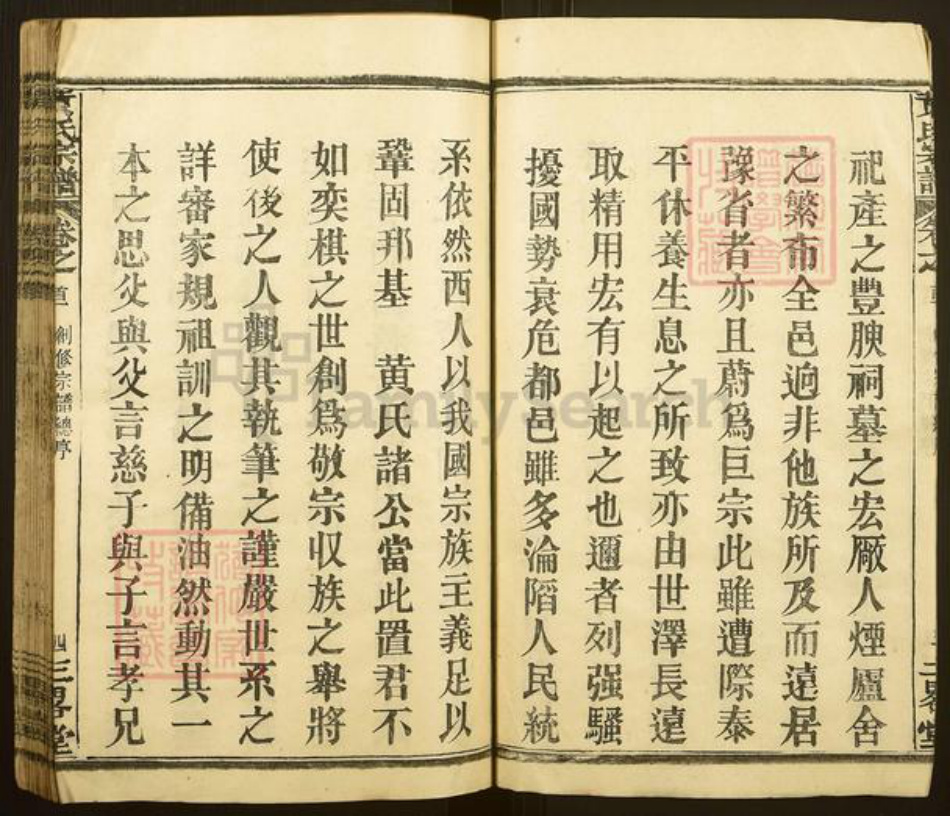 祀產之豊腴祠墓之宏厰人煙廬舍
之繁布全邑逈非他族所及而遠居
豫省者亦且蔚爲巨宗此雖遭際泰
平休養生息之所致亦由世澤長遠
取精用宏有以起之也邇者列强騷
擾國勢衰危都邑雖多淪陷人民統
系依然西人以我國宗族主義足以
鞏固邦基 黄氏諸公當此置君不
如奕棋之世創爲敬宗収族之舉將
使後之人觀其執筆之謹嚴世系之
詳審家規祖訓之明備油然動其一
本之思父與父言慈子與子言孝兄
黄氏宗譜 卷之首 創修宗譜總序 四 三畧堂
FamilySearch